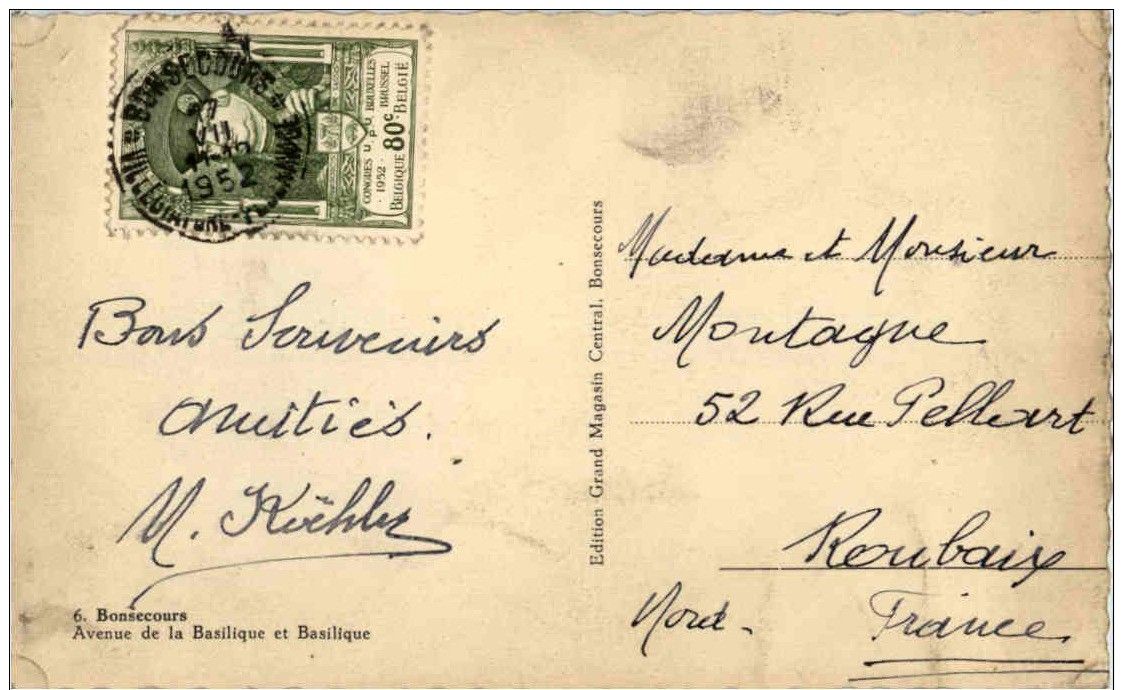 BONSECOURS
VII
1952
CONGRES U.P.U. BRUXELLES
· 1952 · BRUSSEL
BELGIQUE 80c BELGIË
Bons Souvenirs
Amitiés.
M. Köehler
6. Bonsecours
Avenue de la Basilique et Basilique
Edition Grand Magasin Central, Bonsecours
Madame et Monsieur
Montagne
52 Rue Pellart
Roubaix
Nord.
France